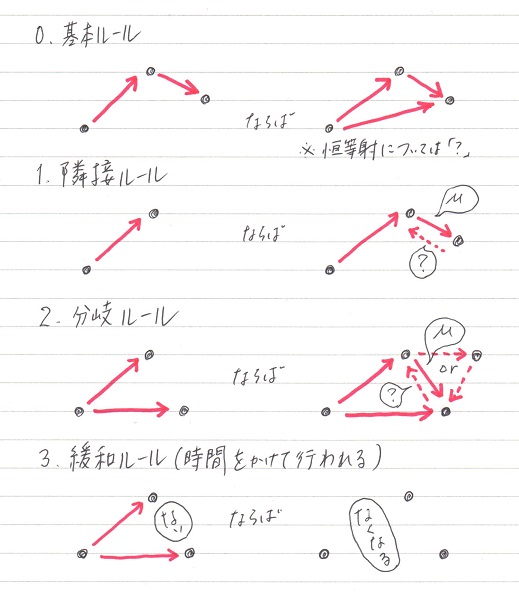 0. 基本ルール
ならば
※ 恒等射については「?」
1. 隣接ルール
ならば
μ
?
2. 分岐ルール
ならば
μ
or
?
3. 緩和ルール(時間をかけて行われる)
ない
ならば
なくなる